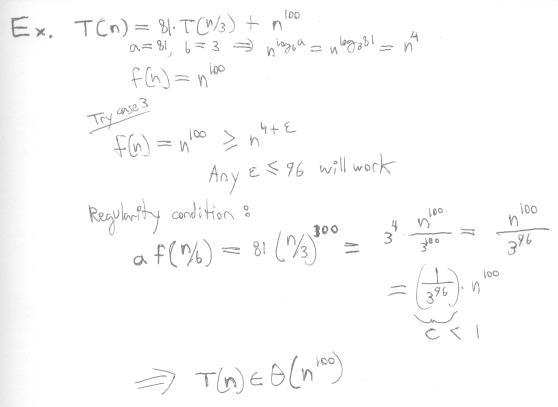 Ex. T(n) = 81·T(n/3) + n^100
a = 81, b = 3 ⇒ n^log_b a = n^log_3 81 = n^4
f(n) = n^100
Try case 3
f(n) = n^100 ≥ n^4+ε
Any ε ≤ 96 will work
Regularity condition :
a f(n/b) = 81 (n/3)^100 = 3^4 · n^100 / 3^100 = n^100 / 3^96
= (1/3^96) · n^100
c < 1
⇒ T(n) ∈ Θ(n^100)